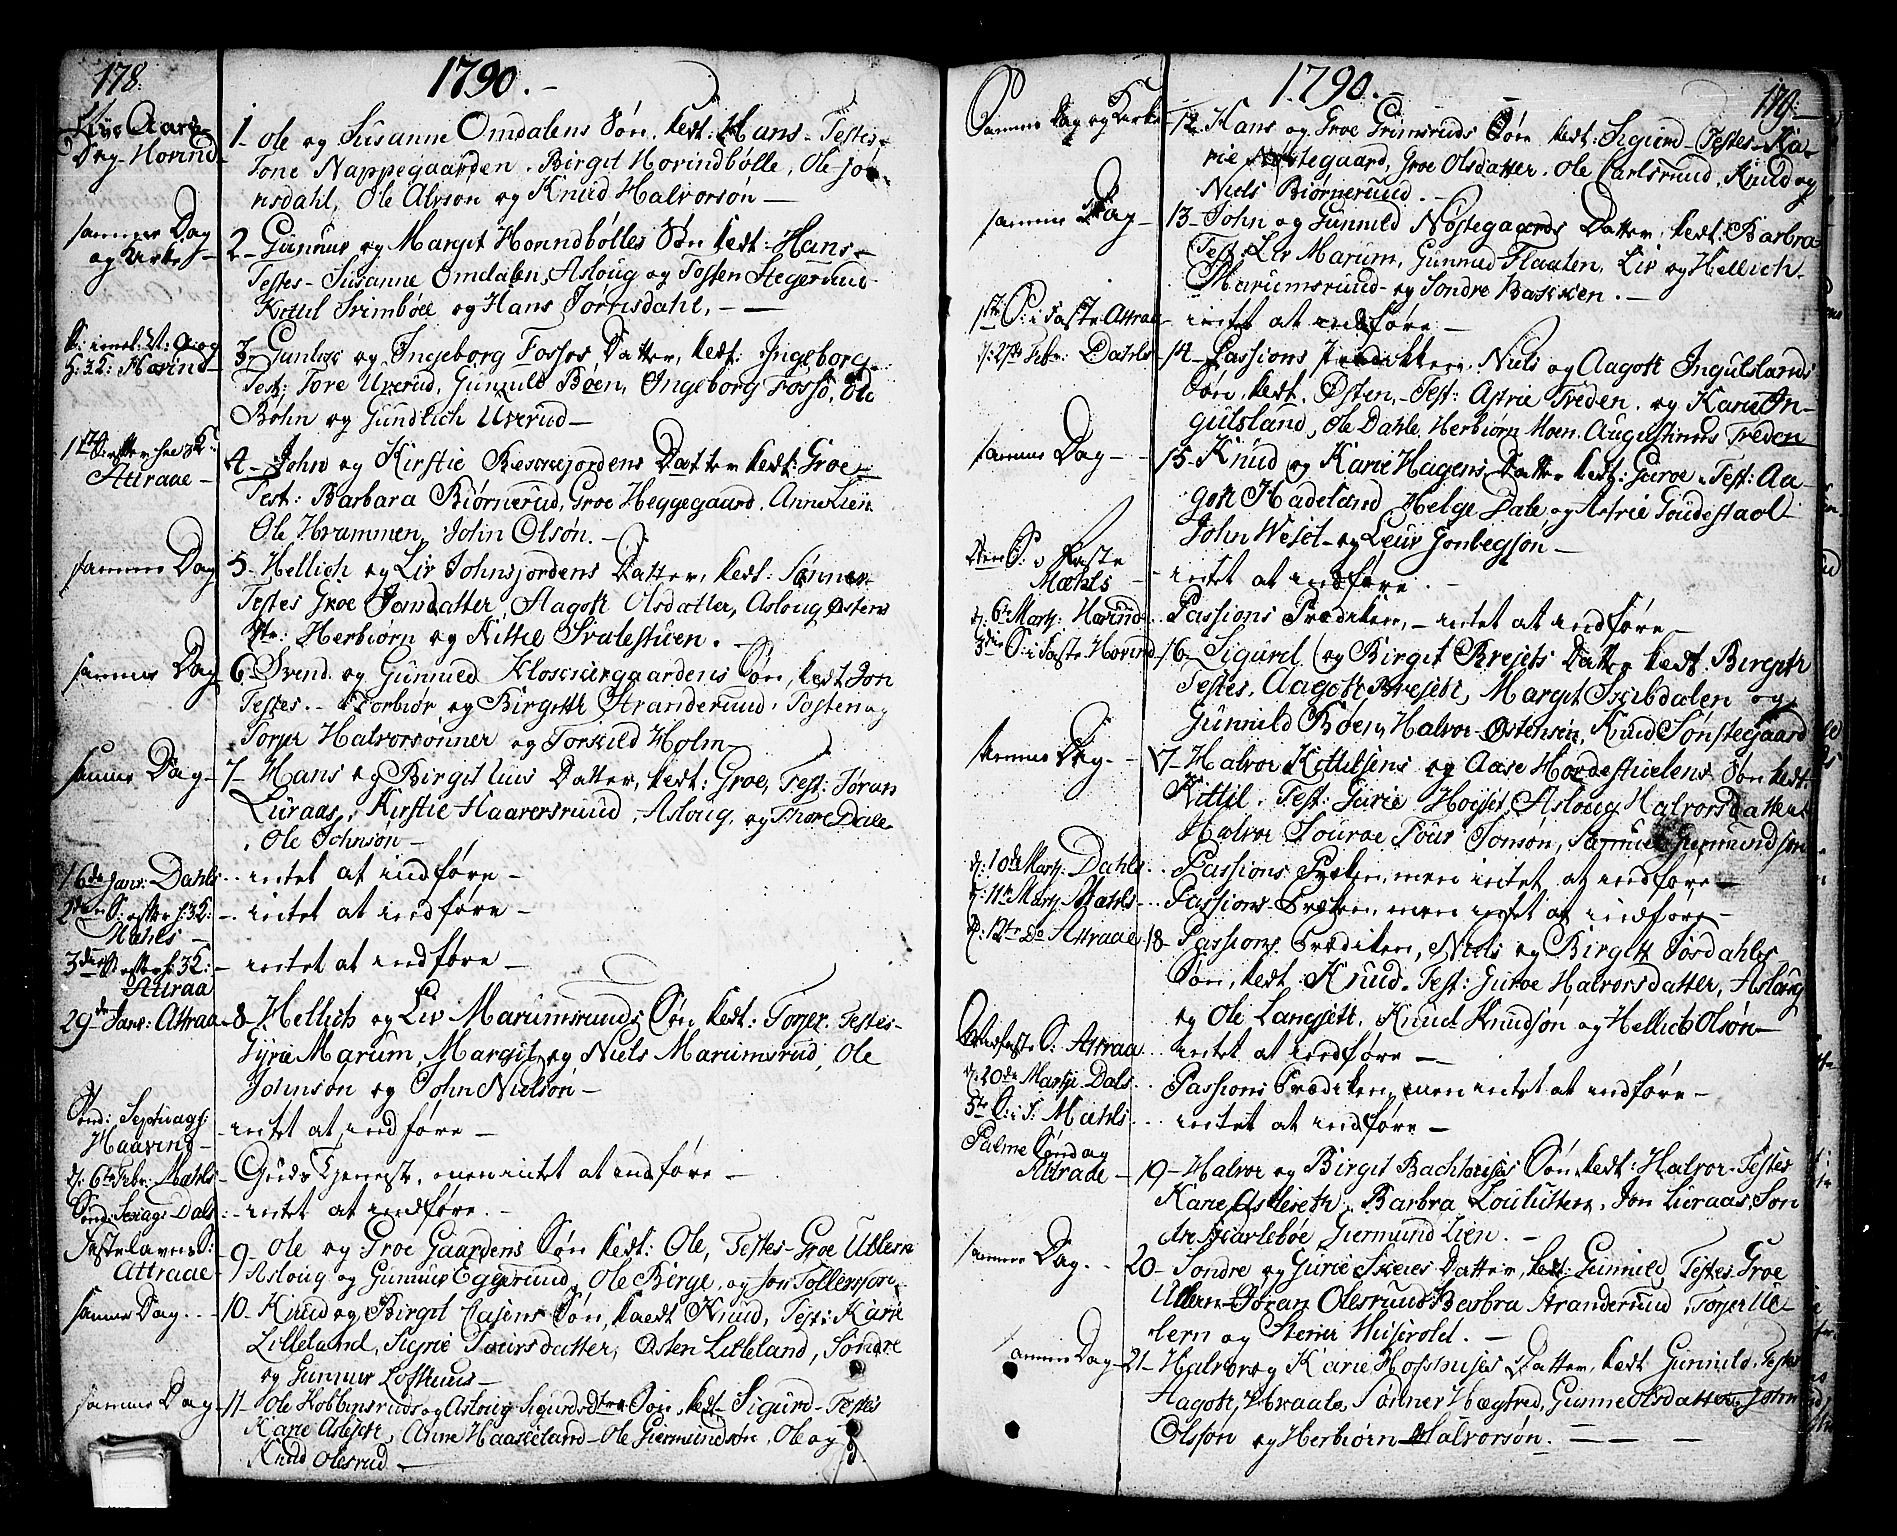 178.
1790.
Nye Aars
Dag Hovind
1- Ole og Susanne Omdalens Søn, kedt: Hans - Testes-
Tone Nappegaarden, Birgit Hovindbølle, Ole Jør
nsdahl, Ole Alvson og Knud Halvorsøn -
samme Dag
og Kirke -
2- Gunnur og Margit Hovindbølles Søn kedt: Hans -
Testes - Susanne Omdalen, Asloug og Tosten Stegerud
Kittil Trimböe og Hans Jörnsdahl. -
H: 3K: Hovind
3- Gunlec og Ingeborg Fossos Datter, kedt: Ingeborg.
Test: Tore Uverud, Gunuld Böen, Ingeborg Fosso, Ole
Böhn og Gundlich Uverud -
1ste S: efter h: 3K:
Attraae -
4- John og Kirstie Bescnejordens Datter kedt: Groe -
Test: Barbara Biørnerud, Groe Heggegaard, Anne Lien
Ole Hvammen, John Olsøn. -
samme Dag
5- Hellich og Liv Johnsjordens Datter, kedt: Sønner
Testes Groe Jonsdatter, Aagott Olsdatter, Asloug Østens
Dtr: Herbiørn og Kittil Svalestuen. -
samme Dag
6- Svend og Gunnild Klosnergaardens Søn, kedt Jon
Testes - Thorbiør og Birgitt Stranderuud, Tosten og
Torjer Halvorsønner og Torkild Holm -
samme Dag -
7- Hans og Birgit lius Datter, kedt: Groe, Test: Jøran
Luraas, Kirstie Haaversruud, Asloug, og Thore Dale
Ole Johnsøn -
16de Janv: Dahls - intet at indføre -
2den S: efter h: 3K: Mæhls - - intet at indføre -
3die S: efter h: 3K: Attraa - intet at indføre -
29de Janv: Attraa - 8- Hellich og Liv Marumsruuds Søn kedt: Torjer. Testes -
Gyrie Marum, Margit og Niels Marumsrud, Ole
Johnsøn og John Nielsøn -
Sønd: Septuags:
Haavind - - intet at indføre -
d: 6te Febr: Mæhls - Guds Tjeneste, men intet at indføre -
Sønd: Sexag: Dals - intet at indføre. -
Fastelavns S:
Attraae -
9- Ole og Groe Gaardens Søn kedt: Ole, Testes - Groe Ullern
Asloug og Gunnur Eggerud, Ole Birge, og Jon Tollefsson
samme Dag. - - 10- Knud og Birgit Casens Søn, kaedt Knud, Test: Karie
Lilleland, Sigrie Tursdatter, Østen Lilleland, Søndre
og Gunnur Lofthuus -
samme Dag - 11- Ole Kobbensruds og Asloug Sigurdsdtrs Søn kedt Sigurd - Testes
Karie Aslesett, Anne Haaseland - Ole Giermundsøn, Ole og
Knud Olesrud -
1790. -
179.
Samme Dag og Kirke 12- Hans og Groe Grimsruds Søn kedt: Sigurd - Testes - Ka-
rie Nøstegaard, Groe Olsdatter, Ole Carlsruud, Knud og
Niels Biørneruud. -
samme Dag - 13- John og Gunnild Nøstegaards Datter, kedt: Barbra
Test: Liv Marum, Gunnild Flaaten, Liv og Hellich
Marumsruud - og Søndre Bakken. -
1ste S: i Faste Attraa - intet at indføre -
d: 27de Febr: Dahls - 14- Passions Prædikken, Niels og Aagott Ingulslands
Søn, kedt. Østen, - Test: Astrie Treden, og Karie In-
gulsland, Ole Dahle, Herbiørn Moen, Augustinus Treden
samme Dag - - 15- Knud og Karie Hagens Datter kedt: Guroe - Test: Aa-
gott Hadeland Helge Dale og Astrie Goudestaol
John Wesøl - og Leur Gonlegson -
2den S: i Faste
Mæhls - intet at indføre -
d: 6te Martj: Hovind - Passions Prædiken, - intet at indføre -
3die S: i Faste Hovind 16- Sigurd og Birgit Brejets Datter kedt: Birgith
Testes, Aagott Brejett, Margit Skibdalen og
Gunnild Bøen, Halvor Østensøn, Knud Sønstegaard
samme Dag. - 17- Halvor Kittilsens og Aase Hordestuelens Søn kedt:
Kittil. Test: Gurie Hoiset, Asloug Halvorsdatter
Halvor Souroe Tour Jonsøn, Samuel Giermundsøn
d: 10de Martj: Dahls - Passions Præken, men intet at indføre -
d: 11te Martj: Mahls - Passions Præken, men intet at indføre -
d: 12te De Attraae 18- Passions Prædiken, Niels og Birgitt Jordahls
Søn, kedt: Knud. Test: Guroe Halvorsdatter, Asloug
og Ole Langsett, Knud Knudsøn og Hellich Olsøn -
Midfaste S: Attraa - intet at indføre -
d: 20de Martji Dals - Passions Prædiken, men intet at indføre -
5te S: i F: Mæhls - - intet at indføre -
Palme Søndag
Attraae - 19- Halvor og Birgit Bachhuses Søn kedt: Halvor - Testes
Karie Aslesett, Barbra Loulutten, Jon Luraas, Søn
dre Hvarlebøe Giermund Lien. -
samme Dag. - 20- Søndre og Gurie Skeies Datter, kedt: Gunnild, Testes Groe
Ullern - Jøran Olesruud Barbra Stranderuud, Torjer Ul-
lern og Stener Huusevold. -
samme Dag - 21- Halvor og Karie Hofshuses Datter, kedt Gunnild, Testes
Aagott Hvaale, Sønner Hægtved, Gunne Olsdatter, John
Olsøn og Herbiørn Halvorsøn. -